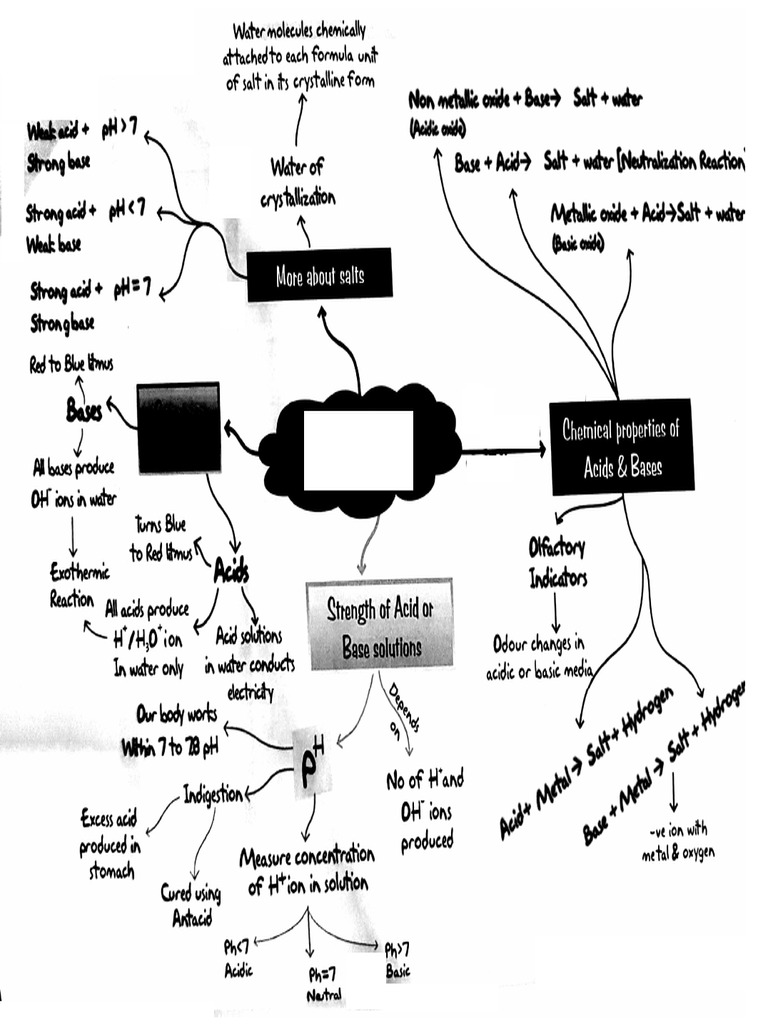 Water molecules chemically
attached to each formula unit
of salt in its crystalline form
Water of
crystallization
More about salts
Weak acid + pH>7
Strong base
Strong acid + pH<7
Weak base
Strong acid + pH=7
Strong base
Non metallic oxide + Base→ Salt + water
(Acidic oxide)
Base + Acid→ Salt + water [Neutralization Reaction]
Metallic oxide + Acid→Salt + water
(Basic oxide)
Chemical properties of
Acids & Bases
Olfactory
Indicators
Odour changes in
acidic or basic media
Acid+ Metal → Salt + Hydrogen
Base + Metal → Salt + Hydrogen
-ve ion with
metal & oxygen
Red to Blue litmus
Bases
All bases produce
OH⁻ ions in water
Exothermic
Reaction
Turns Blue
to Red litmus
Acids
All acids produce
H⁺/H₃O⁺ ion
In water only
Acid solutions
in water conducts
electricity
Strength of Acid or
Base solutions
Depends
on
No of H⁺and
OH⁻ ions
produced
pH
Our body works
Within 7 to 7.8 pH
Indigestion
Excess acid
produced in
stomach
Cured using
Antacid
Measure concentration
of H⁺ion in solution
Ph<7
Acidic
Ph=7
Neutral
Ph>7
Basic